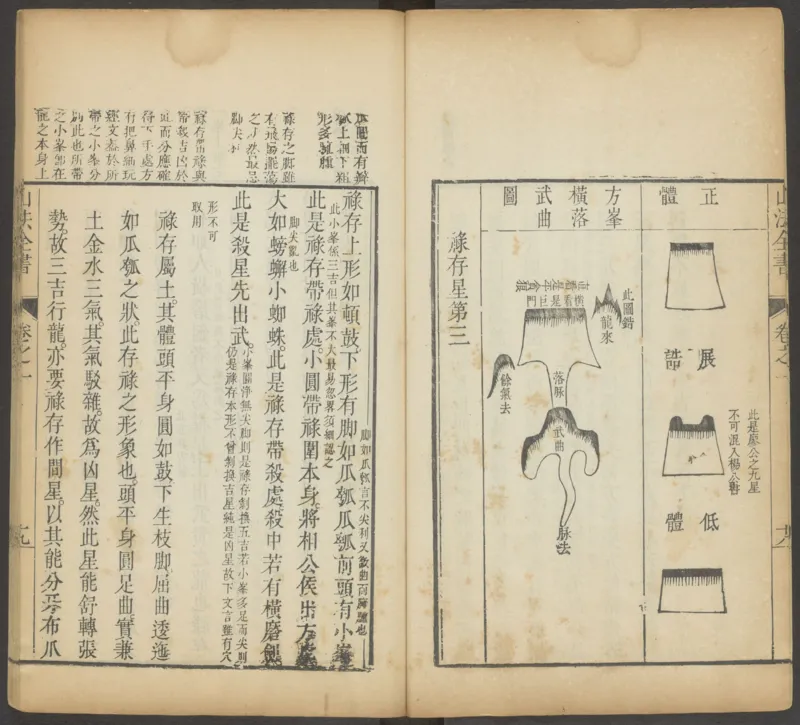 山法全書
卷之一
十八
正體
展誥
低體
此是廖公之九星
不可混入楊公書
方峯
橫落
武曲
圖
此圖錯
龍來
橫看
是巨
門
落脉
餘氣去
武曲
脉去
祿存星第三
而有瓣
瓠上細下粗
形多臃腫
祿存之脚雖
之才然最忌
脚尖利
祿存帶祿與
帶殺吉凶於
此而分應確
得下手處方
有把鼻細玩
經文葢於所
帶之小峯分
別此也所帶
之小峯卽在
龍之本身上
脚如瓜瓠言不尖利又
祿存上形如頓鼓下形有脚如瓜瓠瓜瓠前頭有小峯
此小峯係三吉但其峯不大最易忽畧須細認之
此是祿存帶祿處小圓帶祿圍本身將相公侯出方
脚尖亂也
大如螃蠏小蜘蛛此是祿存帶殺處殺中若有橫磨劍
此是殺星先出武小峯圓淨無尖脚則是祿存剝換五吉若小峯多是而尖則
仍是祿存本形不曾剝換吉星純是凶星故下文言雖有穴
形不可
取用
祿存屬土其體頭平身圓如鼓下生枝脚屈曲逶迤
如瓜瓠之狀此存祿之形象也頭平身圓足曲實兼
土金水三氣其氣駁雜故爲凶星然此星能舒轉張
勢故三吉行龍亦要祿存作間星以其能分牙布爪
山法全書
卷之一
十九